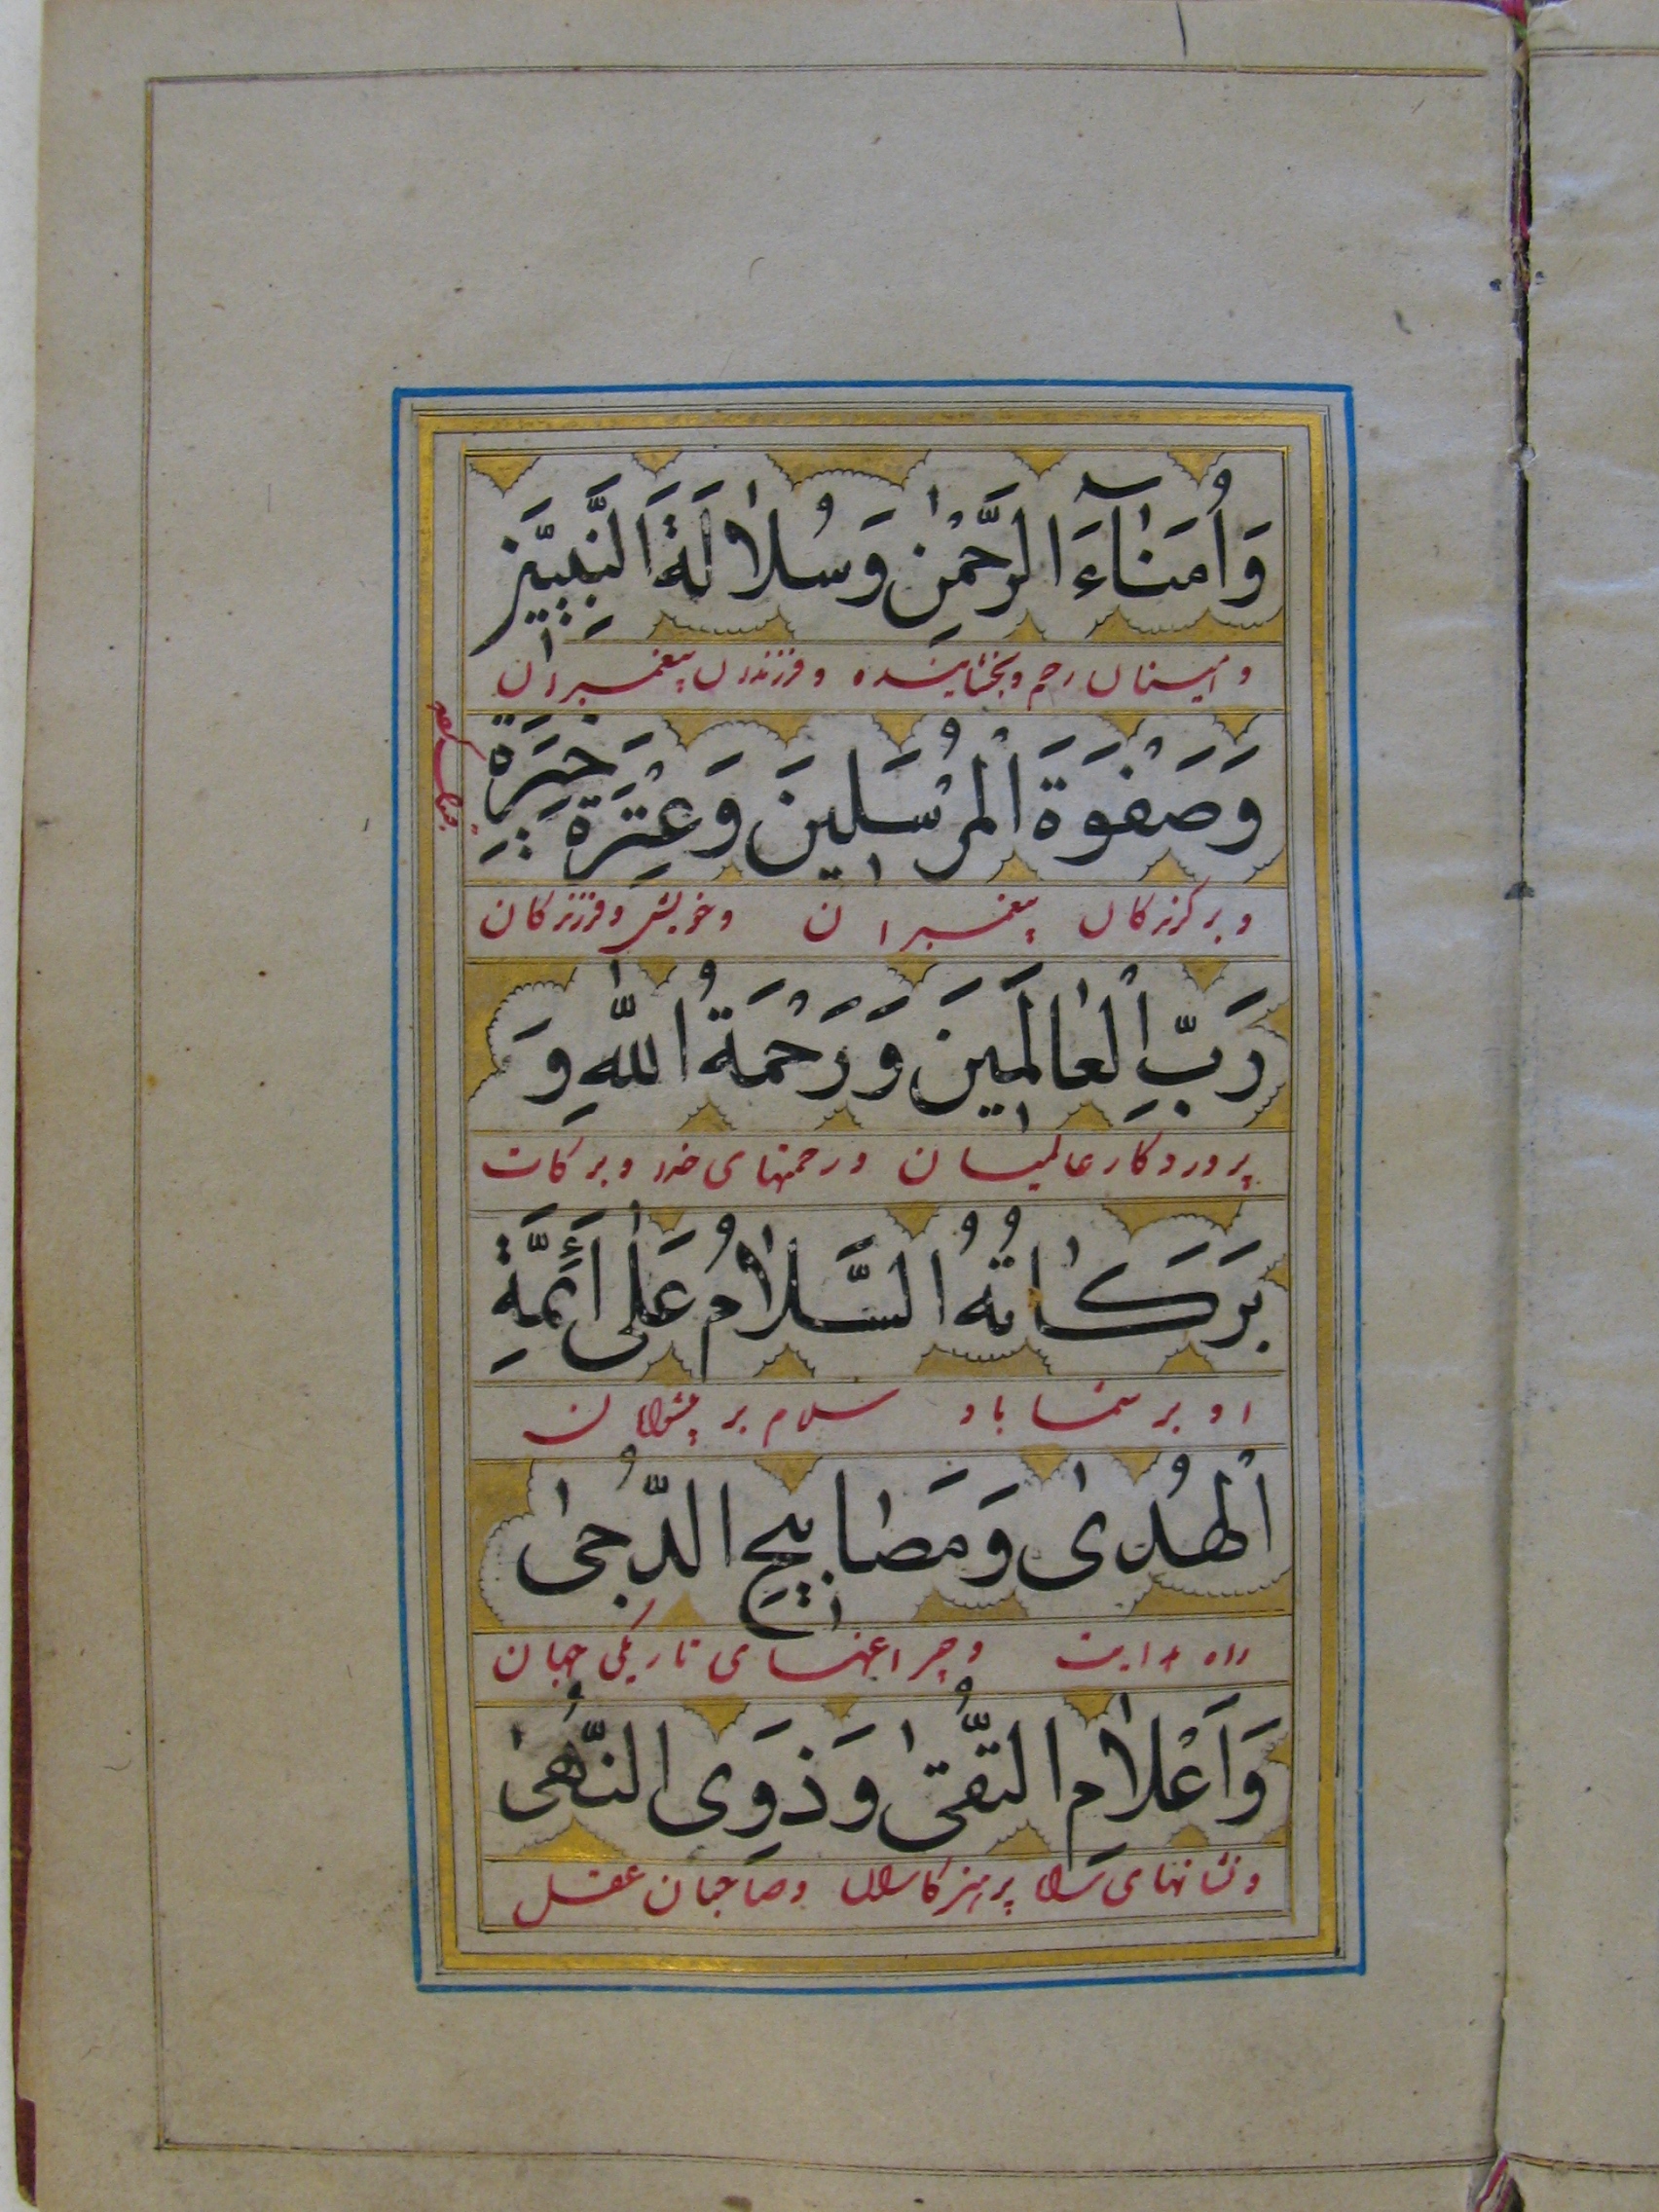 وَاُمَنٰآءَ الرَّحْمٰنِ وَسُلاٰلَةَ النَّبِيّٖيَنَ
و امینان رحم و بخشاینده و فرزندان پیغمبران
وَصَفْوَةَ الْمُرْسَلٖينَ وَعِتْرَةَ خِيَرَةِ
و برگزیدگان پیغمبران و خویش و فرزندکان
رَبِّ الْعٰالَمٖينَ وَرَحْمَةُ اللّٰهِ وَ
پروردگار عالمیان و رحمتهای خدا و برکات
بَرَكٰاتُهُ السَّلاٰمُ عَلٰى اَئِمَّةِ
او بر شما باد سلام بر پیشوایان
الْهُدىٰ وَمَصٰابٖيحِ الدُّجىٰ
راه هدایت و چراغهای تاریکی جهان
وَاَعْلاٰمِ التُّقىٰ وَذَوِى النُّهىٰ
و نشانهای پرهیزکاری و صاحبان عقل